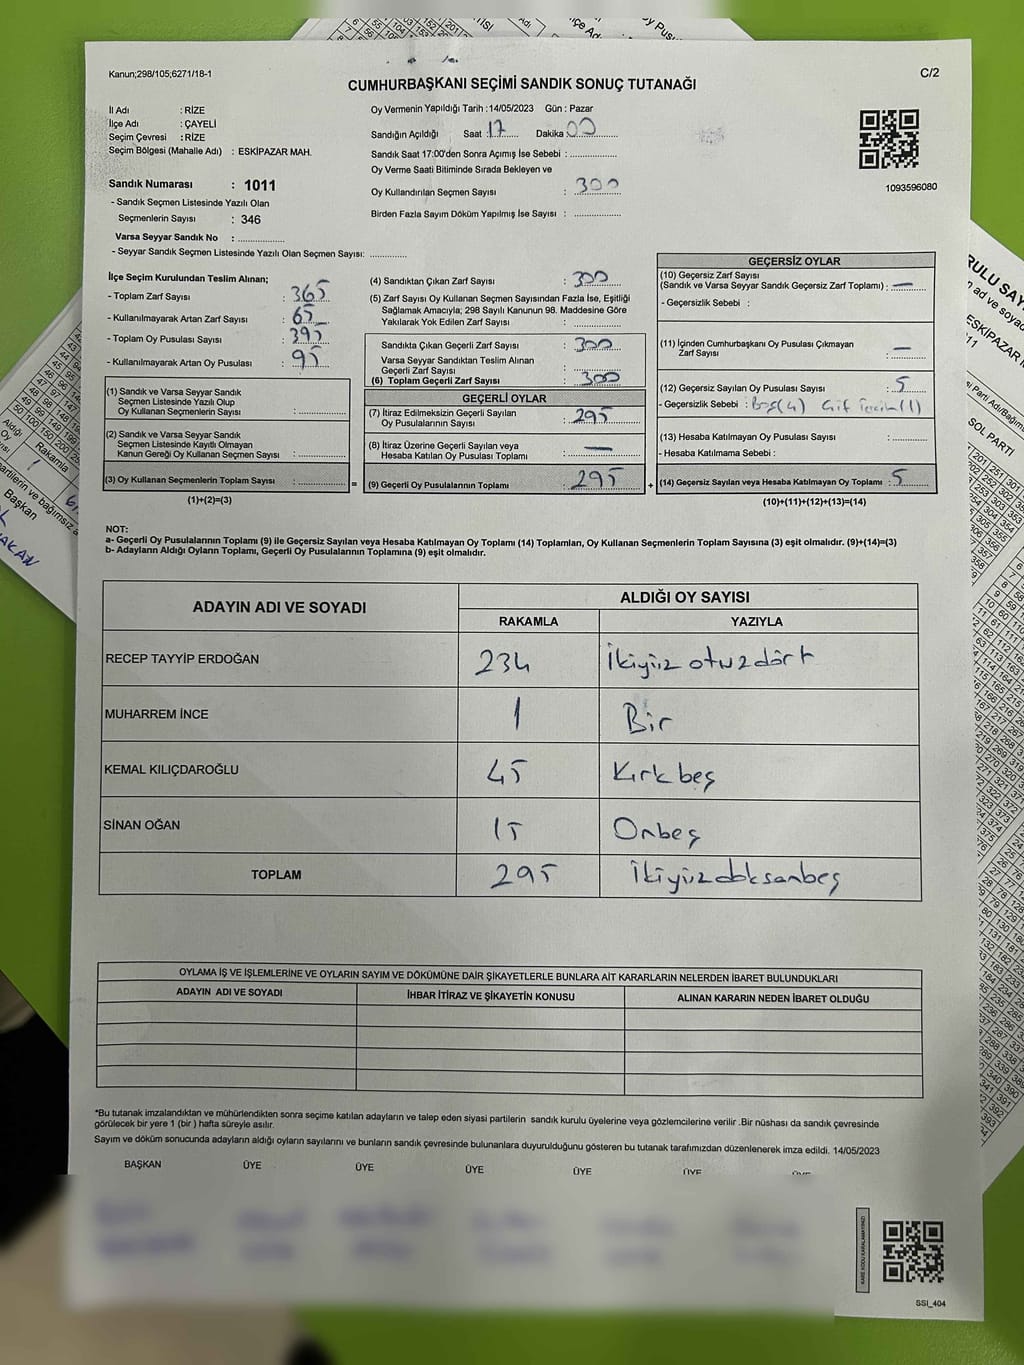 Kanun;298/105;6271/18-1
C/2
CUMHURBAŞKANI SEÇİMİ SANDIK SONUÇ TUTANAĞI
İl Adı : RİZE
İlçe Adı : ÇAYELİ
Seçim Çevresi : RİZE
Seçim Bölgesi (Mahalle Adı) : ESKİPAZAR MAH.
Sandık Numarası : 1011
- Sandık Seçmen Listesinde Yazılı Olan
Seçmenlerin Sayısı : 346
Varsa Seyyar Sandık No : ..............
- Seyyar Sandık Seçmen Listesinde Yazılı Olan Seçmen Sayısı: ............
Oy Vermenin Yapıldığı Tarih :14/05/2023 Gün : Pazar
Sandığın Açıldığı Saat : 17 Dakika 00
Sandık Saat 17:00'den Sonra Açımış İse Sebebi : ..............
Oy Verme Saati Bitiminde Sırada Bekleyen ve
Oy Kullandırılan Seçmen Sayısı : 300
Birden Fazla Sayım Döküm Yapılmış İse Sayısı : ..............
1093596080
İlçe Seçim Kurulundan Teslim Alınan;
- Toplam Zarf Sayısı : 365
- Kullanılmayarak Artan Zarf Sayısı : 65
- Toplam Oy Pusulası Sayısı : 395
- Kullanılmayarak Artan Oy Pusulası : 95
(1) Sandık ve Varsa Seyyar Sandık
Seçmen Listesinde Yazılı Olup
Oy Kullanan Seçmenlerin Sayısı : ..............
(2) Sandık ve Varsa Seyyar Sandık
Seçmen Listesinde Kayıtlı Olmayan
Kanun Gereği Oy Kullanan Seçmen Sayısı : ..............
(3) Oy Kullanan Seçmenlerin Toplam Sayısı : ..............
(1)+(2)=(3)
(4) Sandıktan Çıkan Zarf Sayısı : 300
(5) Zarf Sayısı Oy Kullanan Seçmen Sayısından Fazla İse, Eşitliği
Sağlamak Amacıyla; 298 Sayılı Kanunun 98. Maddesine Göre
Yakılarak Yok Edilen Zarf Sayısı : ..............
Sandıkta Çıkan Geçerli Zarf Sayısı : 300
Varsa Seyyar Sandıktan Teslim Alınan
Geçerli Zarf Sayısı :
(6) Toplam Geçerli Zarf Sayısı : 300
GEÇERLİ OYLAR
(7) İtiraz Edilmeksizin Geçerli Sayılan
Oy Pusulalarının Sayısı : 295
(8) İtiraz Üzerine Geçerli Sayılan veya
Hesaba Katılan Oy Pusulası Toplamı : —
= (9) Geçerli Oy Pusulalarının Toplamı : 295 +
GEÇERSİZ OYLAR
(10) Geçersiz Zarf Sayısı
(Sandık ve Varsa Seyyar Sandık Geçersiz Zarf Toplamı) : —
- Geçersizlik Sebebi :
(11) İçinden Cumhurbaşkanı Oy Pusulası Çıkmayan
Zarf Sayısı —
(12) Geçersiz Sayılan Oy Pusulası Sayısı : 5
- Geçersizlik Sebebi : Boş(4) Çift (1)
(13) Hesaba Katılmayan Oy Pusulası Sayısı : ..............
- Hesaba Katılmama Sebebi :
(14) Geçersiz Sayılan veya Hesaba Katılmayan Oy Toplamı : 5
(10)+(11)+(12)+(13)=(14)
NOT:
a- Geçerli Oy Pusulalarının Toplamı (9) ile Geçersiz Sayılan veya Hesaba Katılmayan Oy Toplamı (14) Toplamları, Oy Kullanan Seçmenlerin Toplam Sayısına (3) eşit olmalıdır. (9)+(14)=(3)
b- Adayların Aldığı Oyların Toplamı, Geçerli Oy Pusulalarının Toplamına (9) eşit olmalıdır.
ADAYIN ADI VE SOYADI
ALDIĞI OY SAYISI
RAKAMLA YAZIYLA
RECEP TAYYİP ERDOĞAN 234 İkiyüz otuzdört
MUHARREM İNCE 1 Bir
KEMAL KILIÇDAROĞLU 45 Kırk beş
SİNAN OĞAN 15 Onbeş
TOPLAM 295 İkiyüzdoksanbeş
OYLAMA İŞ VE İŞLEMLERİNE VE OYLARIN SAYIM VE DÖKÜMÜNE DAİR ŞİKAYETLERLE BUNLARA AİT KARARLARIN NELERDEN İBARET BULUNDUKLARI
ADAYIN ADI VE SOYADI İHBAR İTİRAZ VE ŞİKAYETİN KONUSU ALINAN KARARIN NEDEN İBARET OLDUĞU
*Bu tutanak imzalandıktan ve mühürlendikten sonra seçime katılan adayların ve talep eden siyasi partilerin sandık kurulu üyelerine veya gözlemcilerine verilir .Bir nüshası da sandık çevresinde
görülecek bir yere 1 (bir ) hafta süreyle asılır.
Sayım ve döküm sonucunda adayların aldığı oyların sayılarını ve bunların sandık çevresinde bulunanlara duyurulduğunu gösteren bu tutanak tarafımızdan düzenlenerek imza edildi. 14/05/2023
BAŞKAN ÜYE ÜYE ÜYE ÜYE ÜYE
KARE KODU KARALAMAYINIZ!
SSI_404